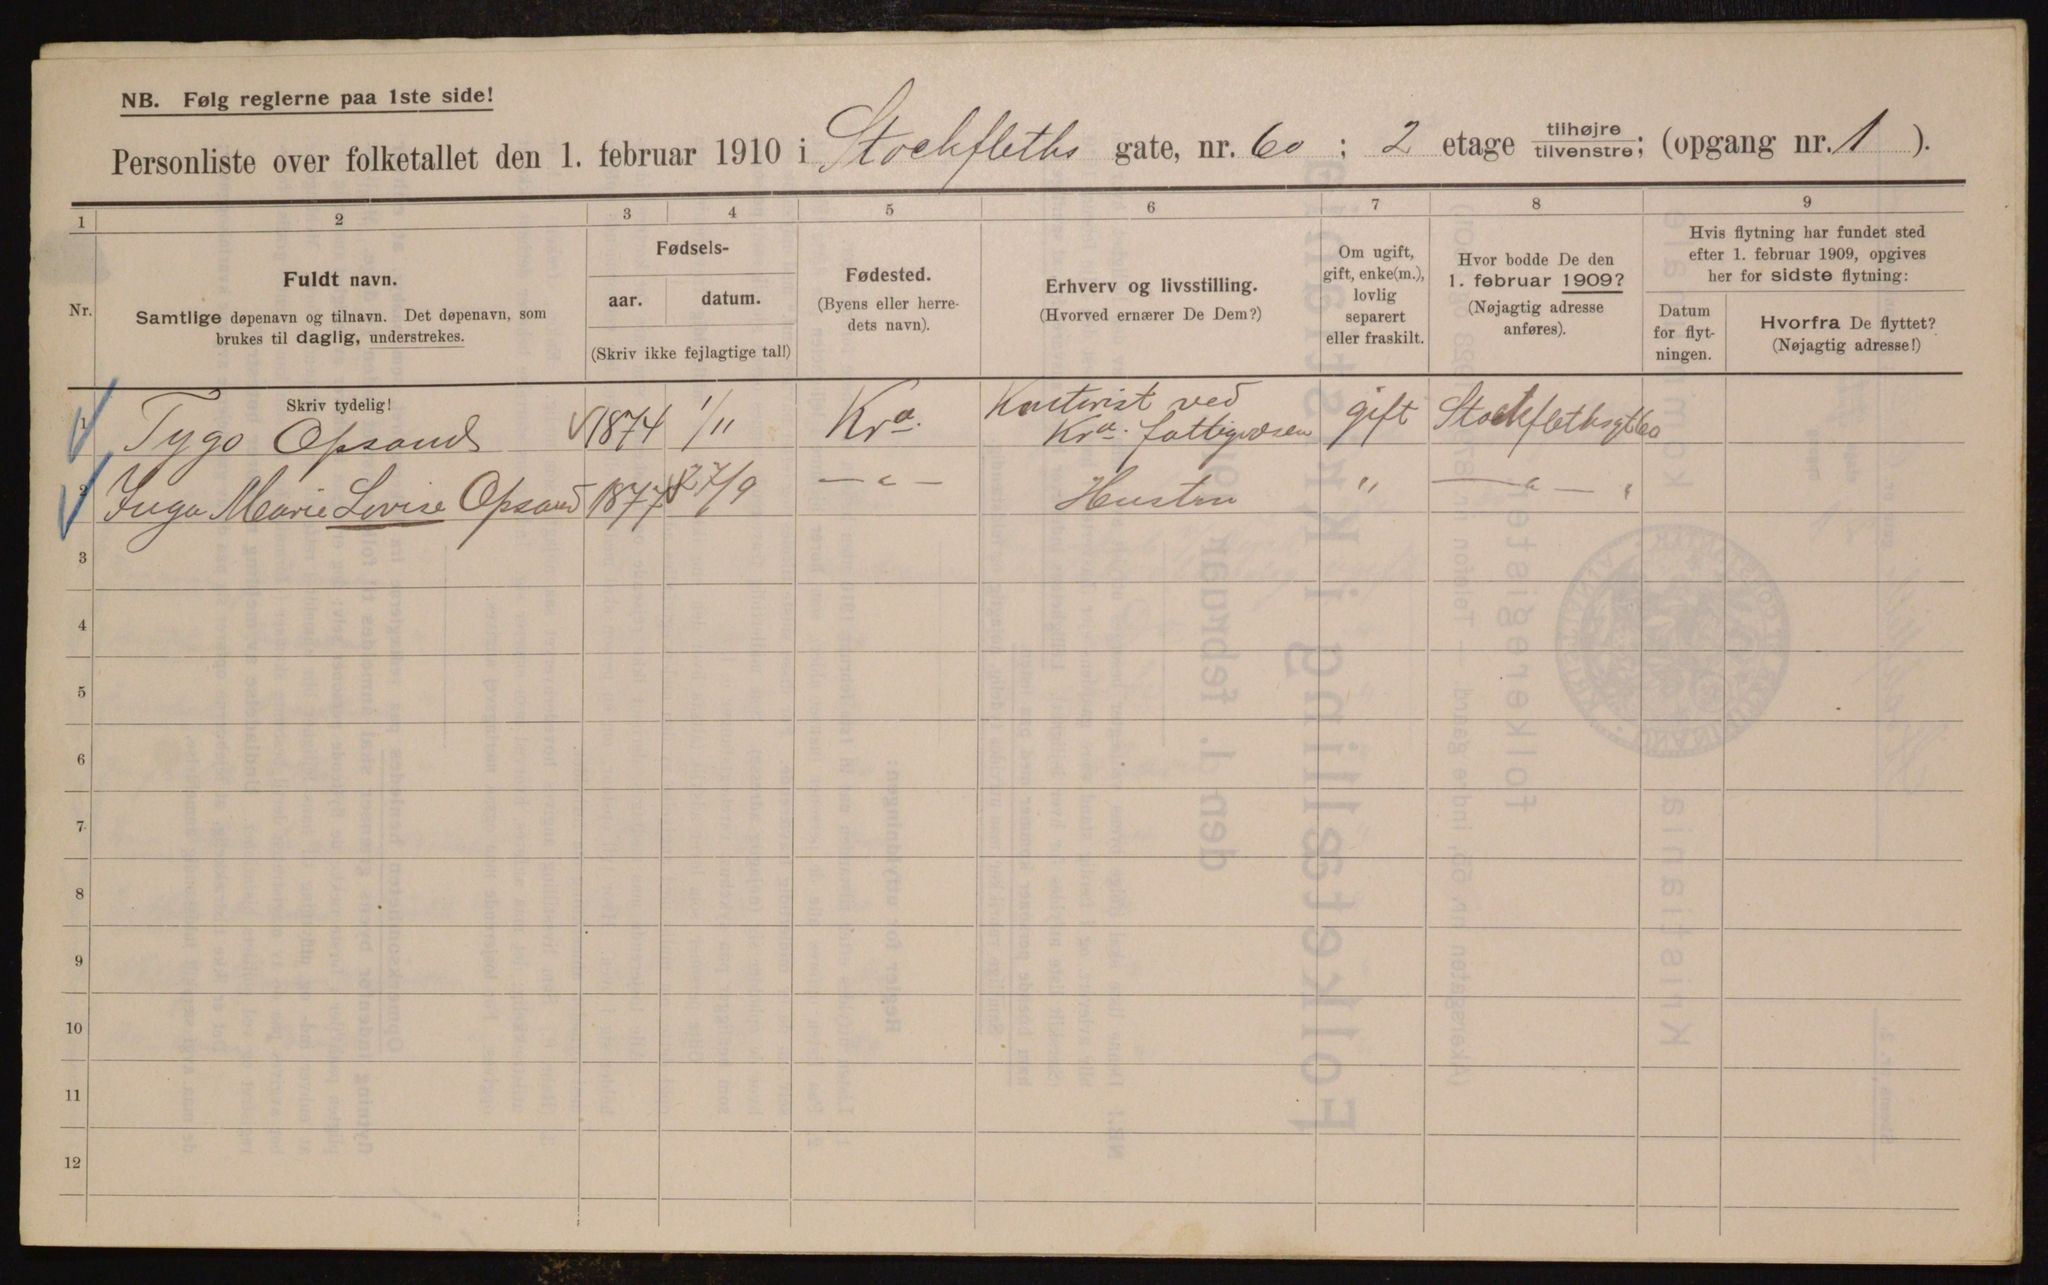 NB. Følg reglerne paa 1ste side!
Personliste over folketallet den 1. februar 1910 i Stockfleths gate, nr. 60 ; 2 etage tilhøjre tilvenstre; (opgang nr. 1 ).
1 2 3 4 5 6 7 8 9
Nr.
Fuldt navn.
Samtlige døpenavn og tilnavn. Det døpenavn, som
brukes til daglig, understrekes.
Fødsels-
aar. datum.
(Skriv ikke fejlagtige tal!)
Fødested.
(Byens eller herre-
dets navn).
Erhverv og livsstilling.
(Hvorved ernærer De Dem?)
Om ugift,
gift, enke(m.),
lovlig
separert
eller fraskilt.
Hvor bodde De den
1. februar 1909?
(Nøjagtig adresse
anføres).
Hvis flytning har fundet sted
efter 1. februar 1909, opgives
her for sidste flytning:
Datum
for flyt-
ningen.
Hvorfra De flyttet?
(Nøjagtig adresse!)
Skriv tydelig!
1 Tygo Opsand 1874 1/11 Kra. Kontorist ved Kra. fattigvæsen gift Stockflethsgt 60
2 Inga Marie Lovise Opsand 1877 27/9 — " — Hustru " — " — "
3
4
5
6
7
8
9
10
11
12